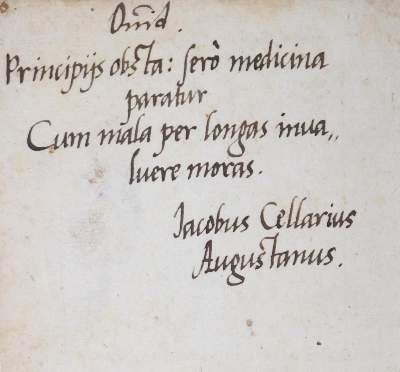 Ovid.
Principijs obsta: serò medicina
paratur
Cum mala per longas inua„
luere moras.
Jacobus Cellarius
Augustanus.